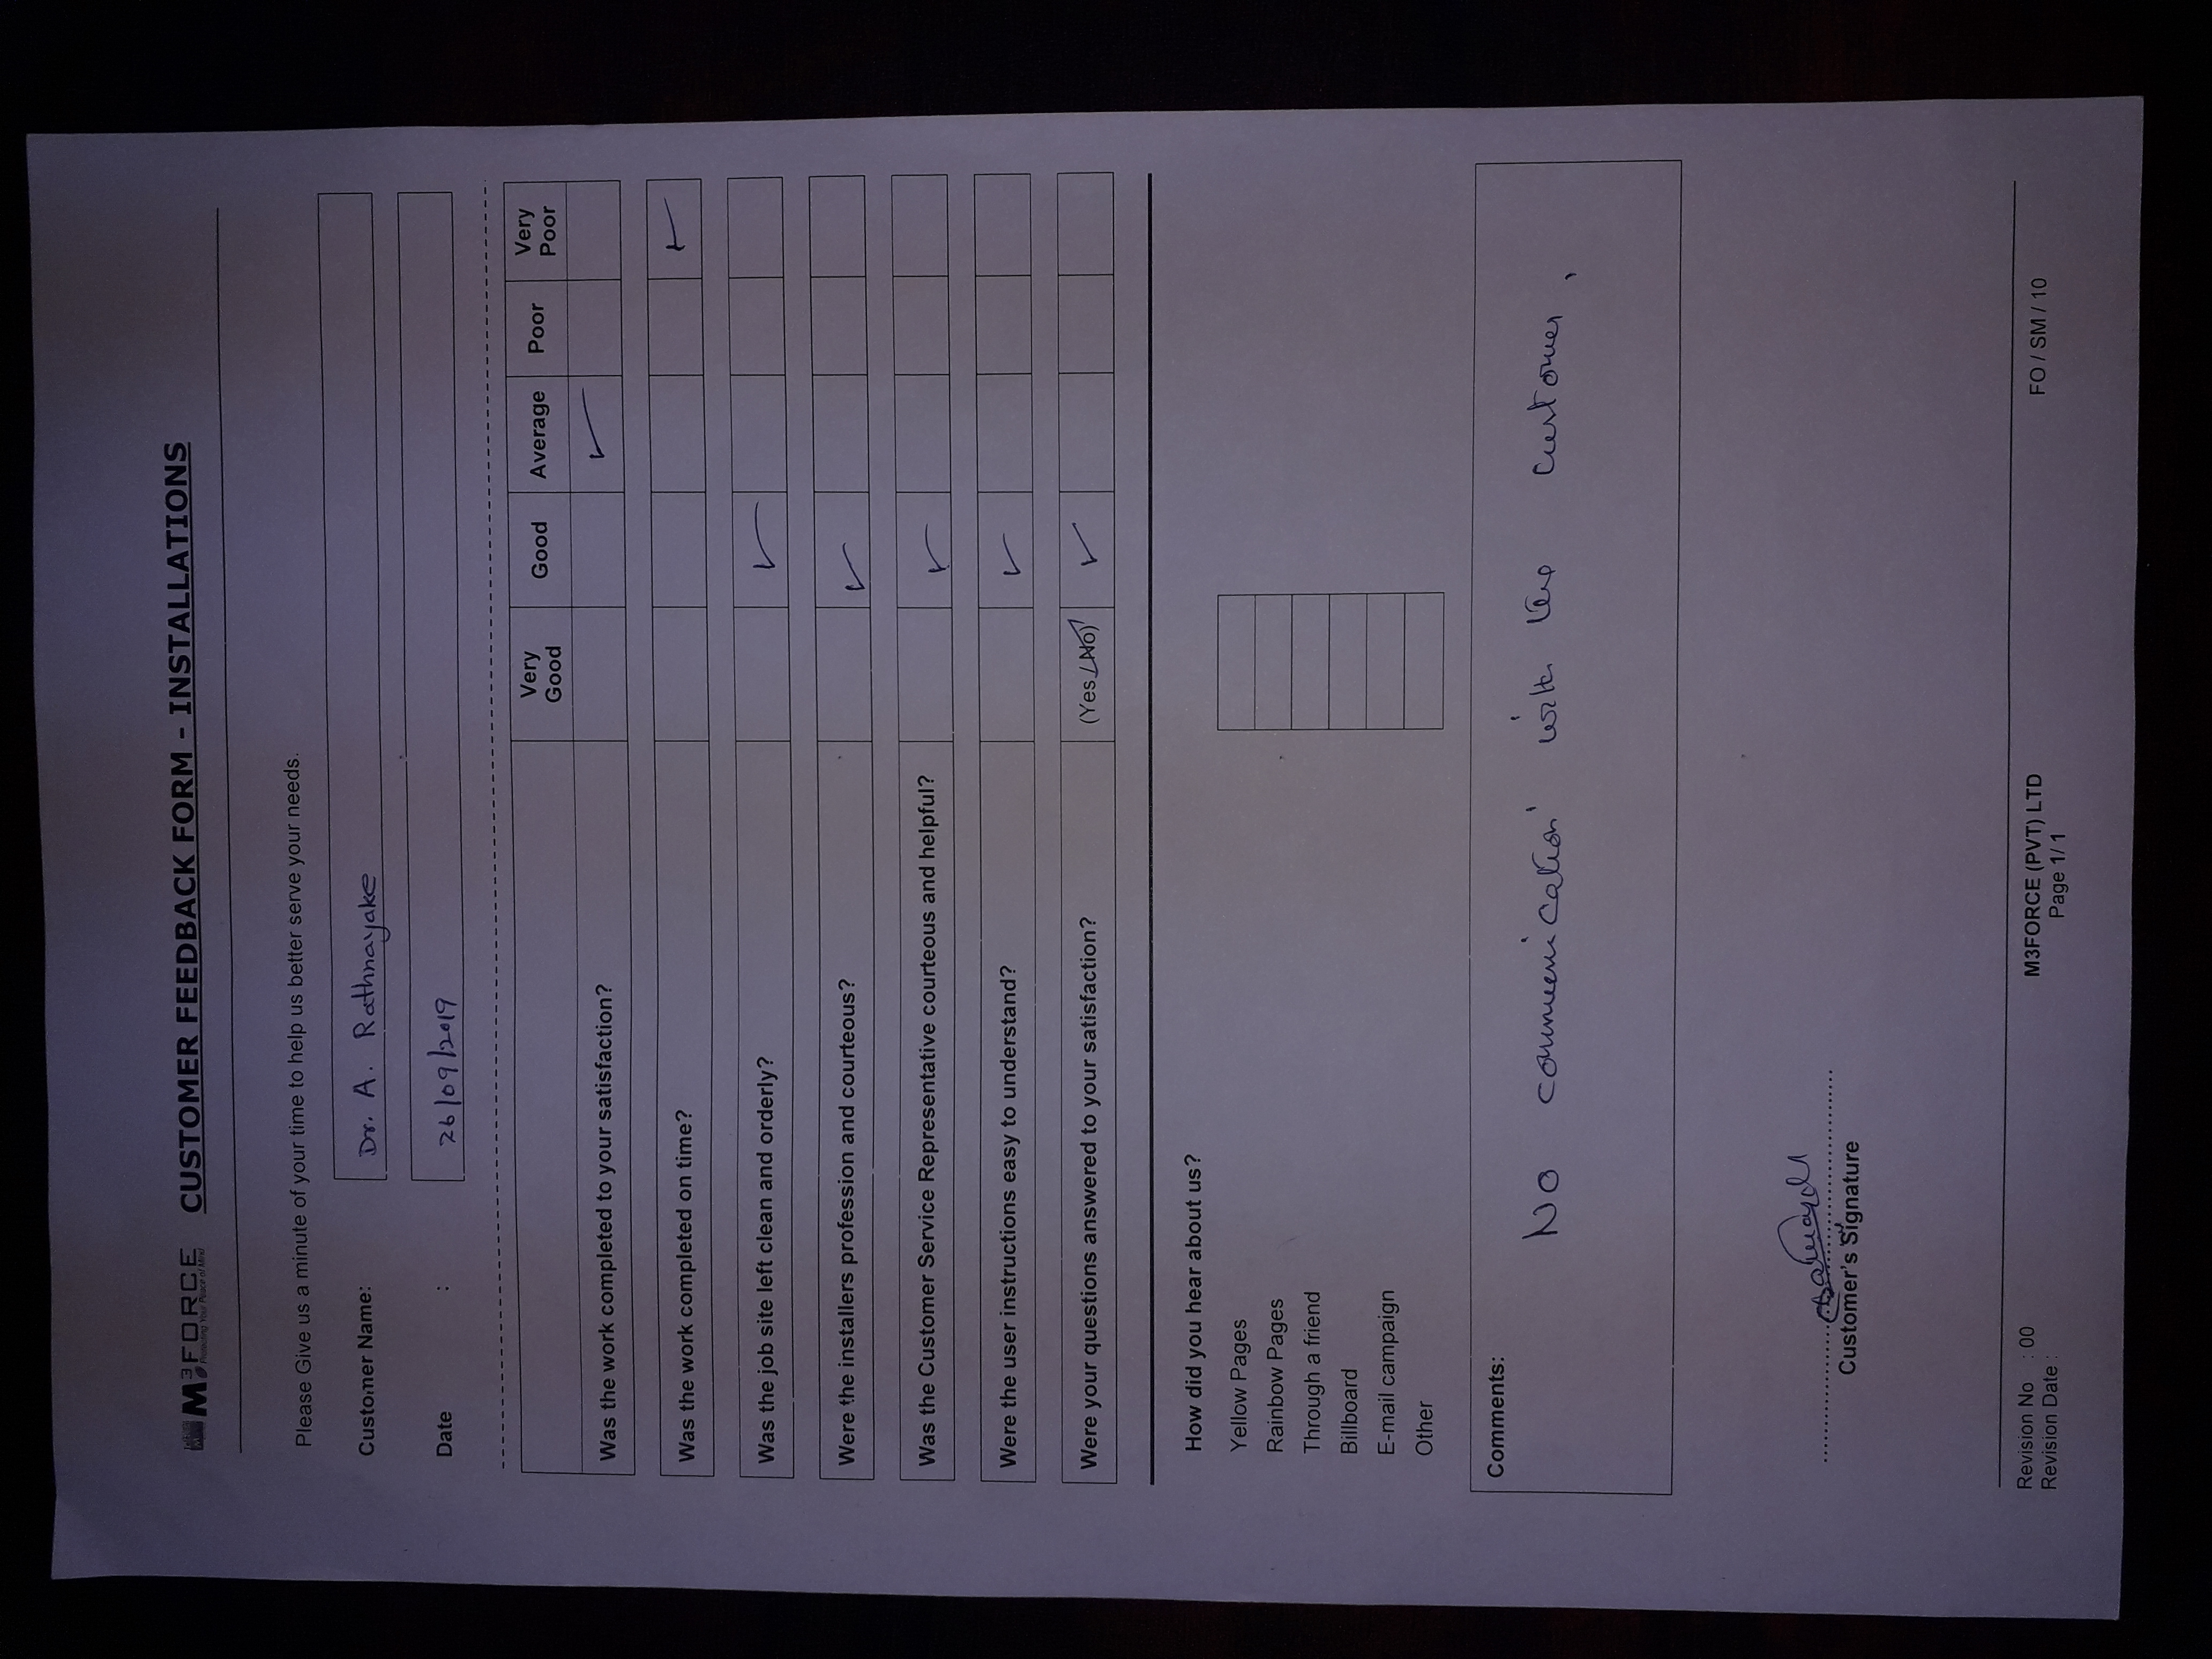 M3FORCE
Protecting Your Peace of Mind
CUSTOMER FEEDBACK FORM - INSTALLATIONS
Please Give us a minute of your time to help us better serve your needs.
Customer Name: Dr. A. Rathnayake
Date : 26/09/2019
Very Good Good Average Poor Very Poor
Was the work completed to your satisfaction?
Was the work completed on time?
Was the job site left clean and orderly?
Were the installers profession and courteous?
Was the Customer Service Representative courteous and helpful?
Were the user instructions easy to understand?
Were your questions answered to your satisfaction? (Yes / No)
How did you hear about us?
Yellow Pages
Rainbow Pages
Through a friend
Billboard
E-mail campaign
Other
Comments:
No communication with the customer,
Customer's Signature
Revision No : 00
Revision Date :
M3FORCE (PVT) LTD
Page 1/ 1
FO / SM / 10